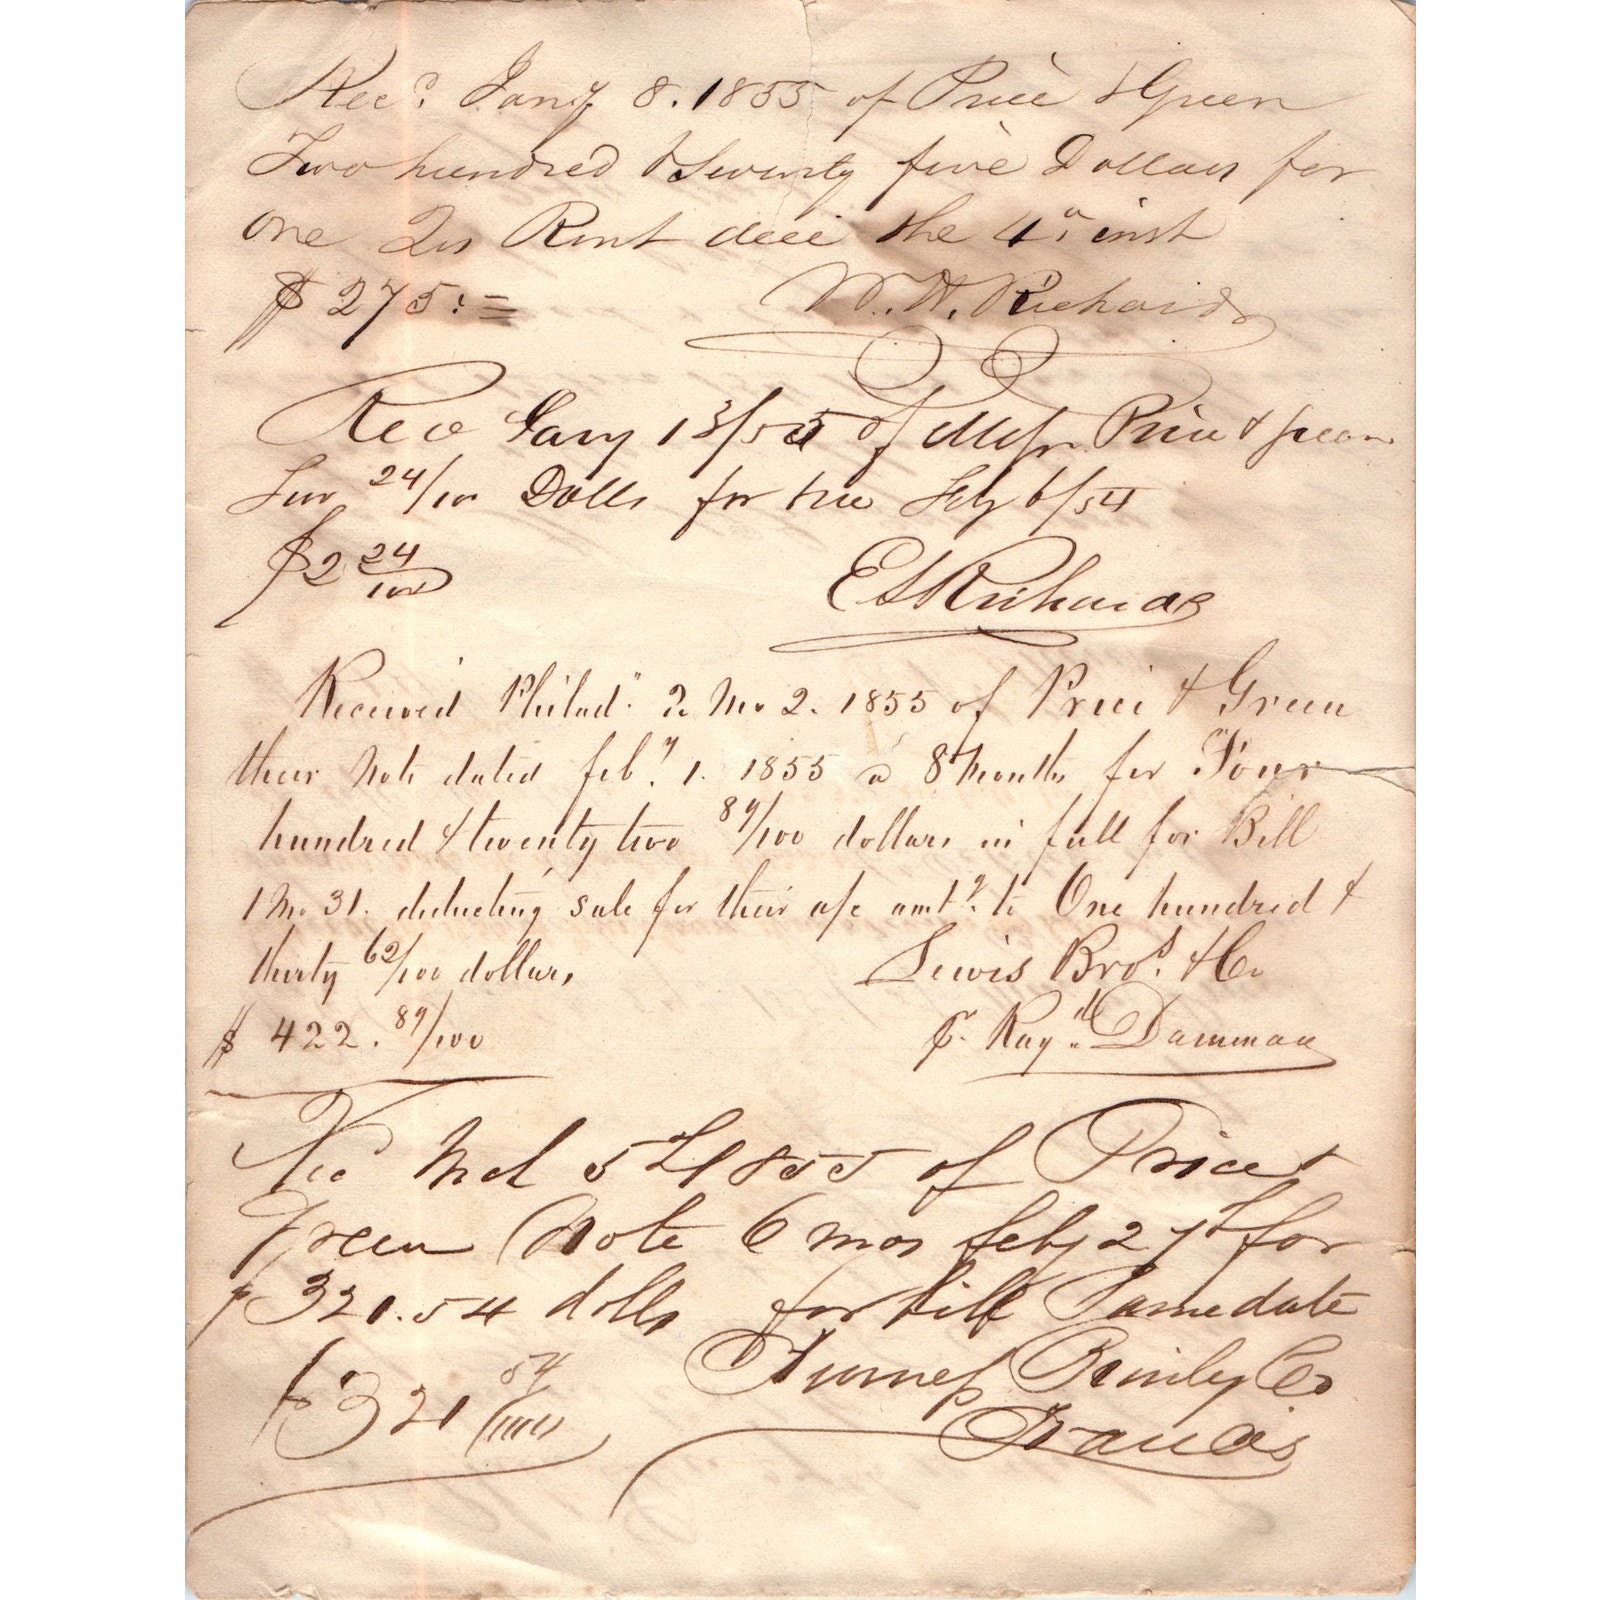 Recd Jany 8. 1855 of Price & Green
Two hundred & Seventy five Dollars for
one Qrs Rent due the 4" inst
$ 275: = W. H. Richards
Recd Jany 13/55 of Messr Price & Green
Two 24/100 Dolls for Prem Feby 6/54
$2 24/100 E S Richards
Received Philada 2 Mo 2. 1855 of Price & Green
their Note dated feby 1. 1855 @ 8 Months for Four
hundred & twenty two 89/100 dollars in full for Bill
1 Mo 31. deducting sale for their a/c amtg to One hundred &
thirty 62/100 dollars,
Lewis Bros. & Co
$ 422. 89/100 Damman
Recd Mch 5th 1855 of Price &
Green Note 6 mos feby 27th for
$ 321.54 dolls for bill Same date
Furness Brinley Co
$ 321 54/100 Francis